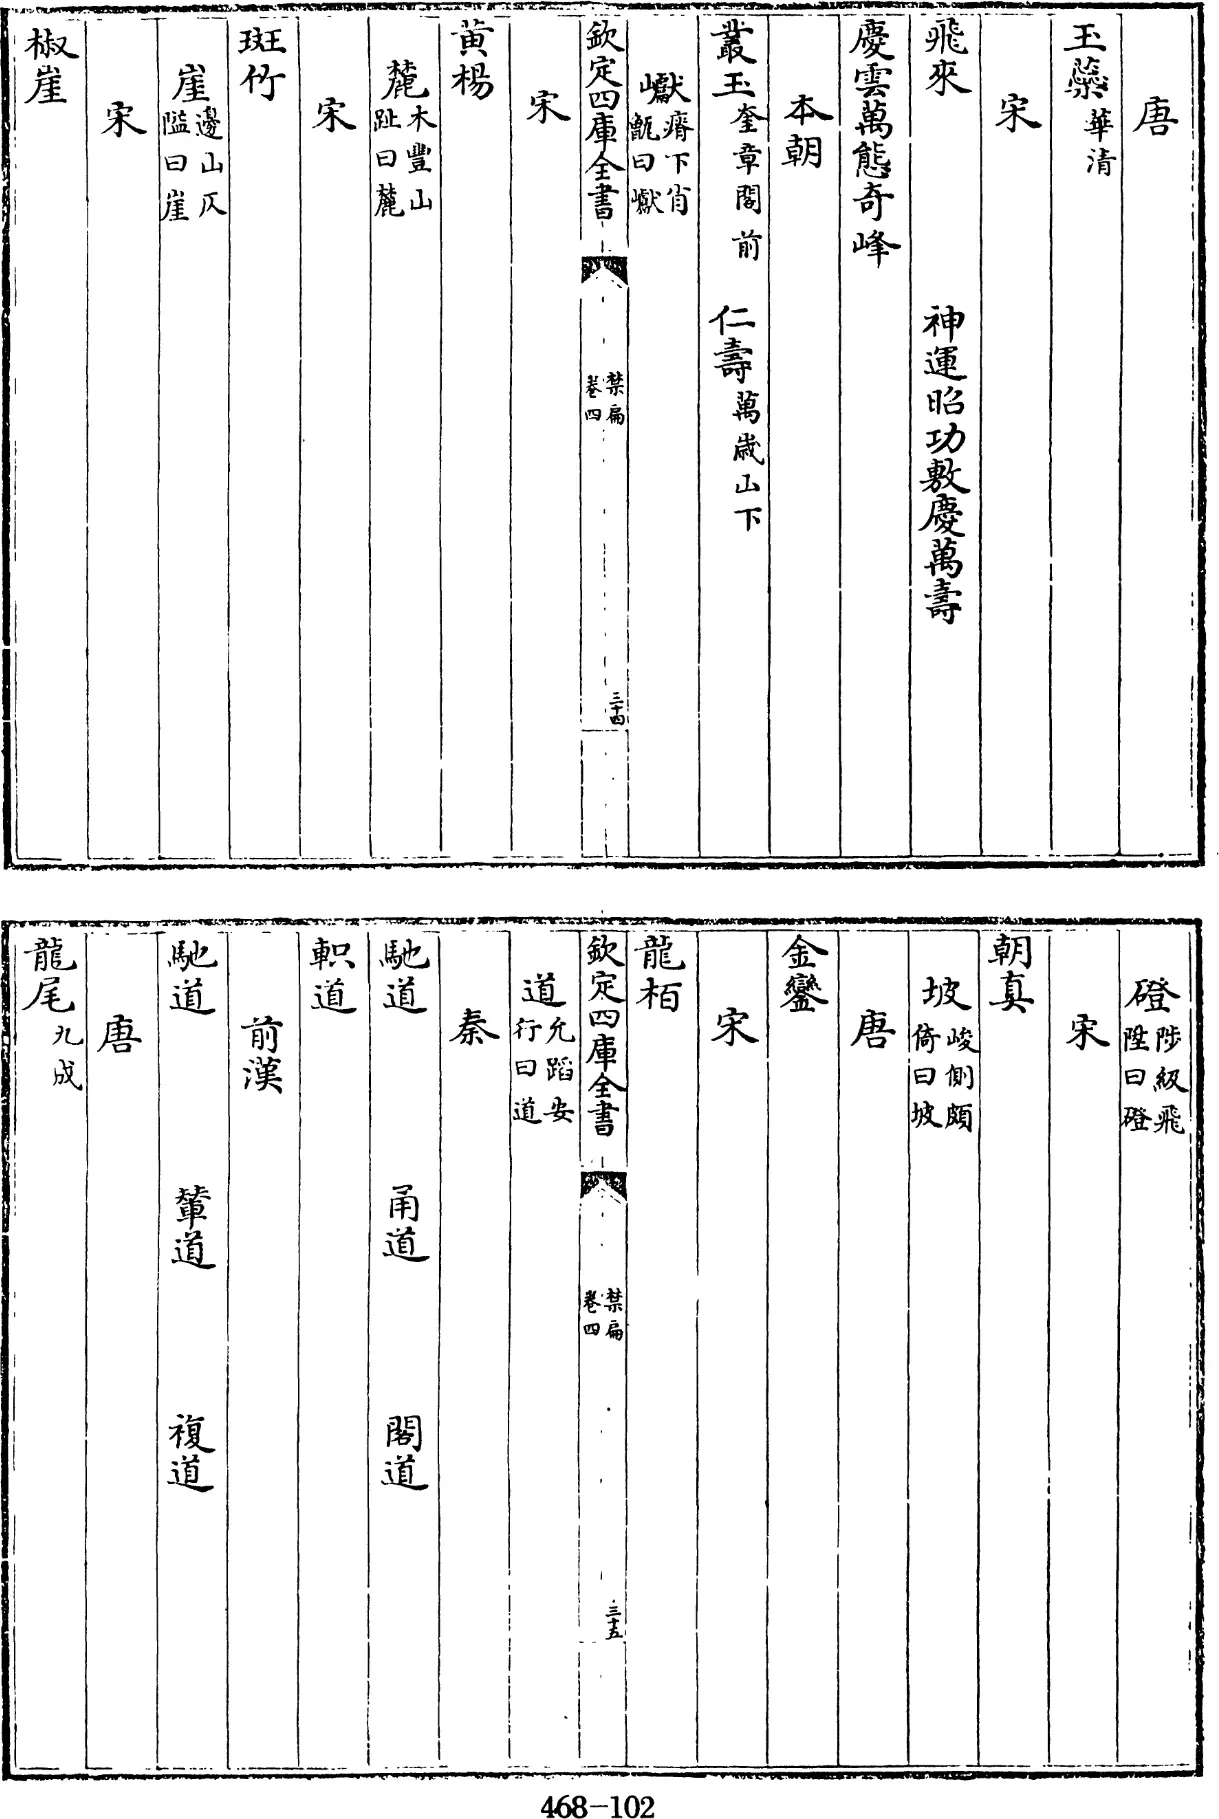 唐
玉蘂華清
宋
飛來 神運昭功敷慶萬壽
慶雲萬態奇峰
本朝
叢玉奎章閣前 仁壽萬歲山下
巘瘠下肖甑曰巘
欽定四庫全書 禁扁卷四 三十四
宋
黄楊
麓木豐山趾曰麓
宋
斑竹
崖邊山仄隘曰崖
宋
椒崖
磴陟級飛陞曰磴
宋
朝真
坡峻側頗倚曰坡
唐
金鑾
宋
龍栢
欽定四庫全書 禁扁卷四 三十五
道允蹈安行曰道
秦
馳道 甬道 閣道
軹道
前漢
馳道 輦道 複道
唐
龍尾九成
468-102